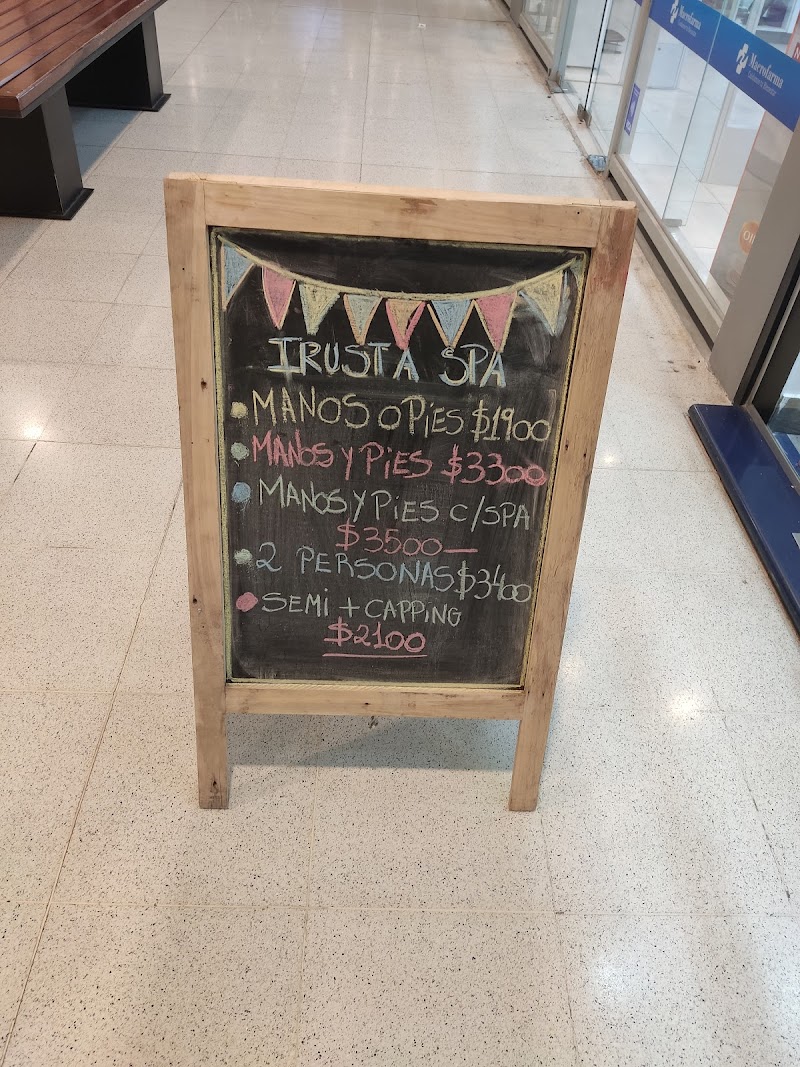 IRUSTA SPA
MANOS O PiES $1900
MANOS Y PiES $3300
MANOS Y PiES C/SPA
$3500
2 PERSONAS $3400
SEMi + CAPPiNG
$2100
Macrofarma
Macrofarma